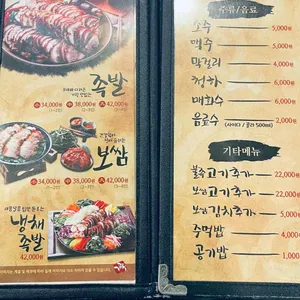 족발
小 34,000원
中 38,000원
大 42,000원
보쌈
小 34,000원
中 38,000원
大 42,000원
냉채
족발
42,000원
주류/음료
소주 5,000원
맥주 5,000원
막걸리 4,000원
청하 5,000원
매화수 6,000원
음료수 (사이다 / 콜라 500ml) 2,000원
기타메뉴
불족고기추가 22,000원
보쌈고기추가 22,000원
보쌈김치추가 5,000원
주먹밥 4,000원
공기밥 1,000원